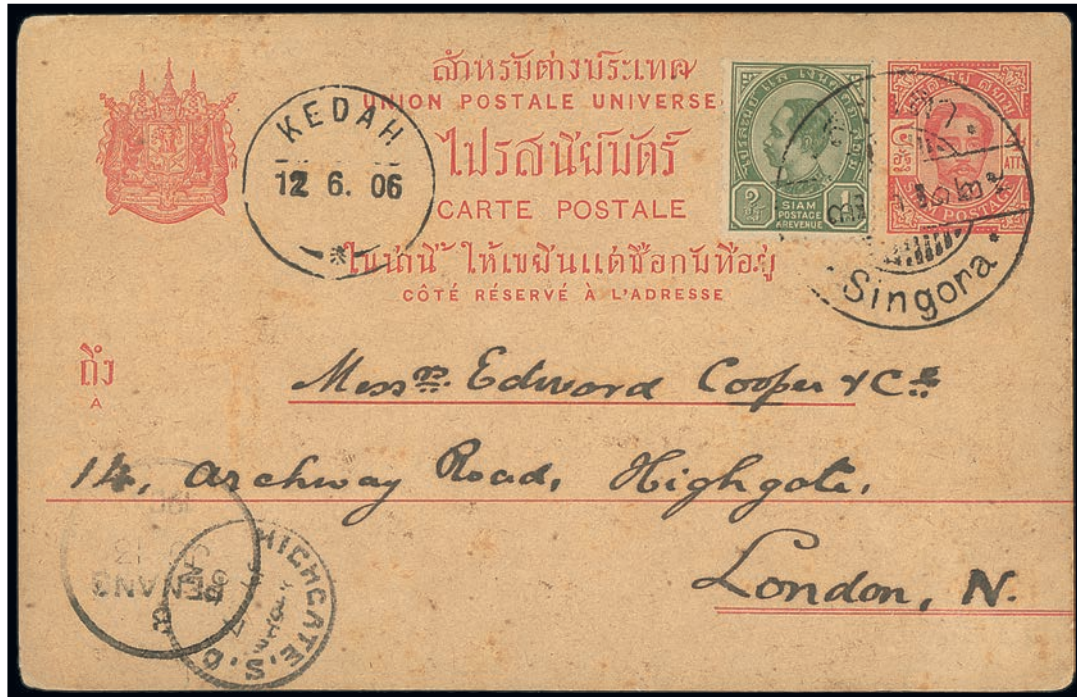 สำหรับต่างประเทศ
UNION POSTALE UNIVERSE
ไปรสนีย์บัตร์
CARTE POSTALE
ในน่านี้ ให้เขียนแต่ชื่อกับที่อยู่
CÔTÉ RÉSERVÉ À L'ADRESSE
KEDAH
12 6. 06
SIAM
POSTAGE
& REVENUE
ATT
POSTAGE
Singora
ถึง
A
Messrs. Edward Cooper & Co
14, Archway Road, Highgate,
London, N.
PENANG
HIGHGATE. S.O